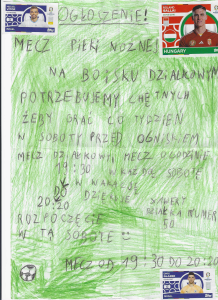 OGŁOSZENIE!
MECZ PIŁKI NOŻNEJ
NA BOISKU DZIAŁKOWYM
POTRZEBUJEMY CHĘTNYCH
ŻEBY GRAĆ CO TYDZIEŃ
W SOBOTY PRZED OGNISKIEM
MECZ DZIAŁKOWY, MECZ O GODZINIE
19:30 W KAŻDĄ SOBOTE
W WAKACJE
DO
20:20
DZIAŁKA NUMER
ROZPOCZĘCIE 50
W TĄ SOBOTE
MECZ OD 19:30 DO 20:20
HUNGARY